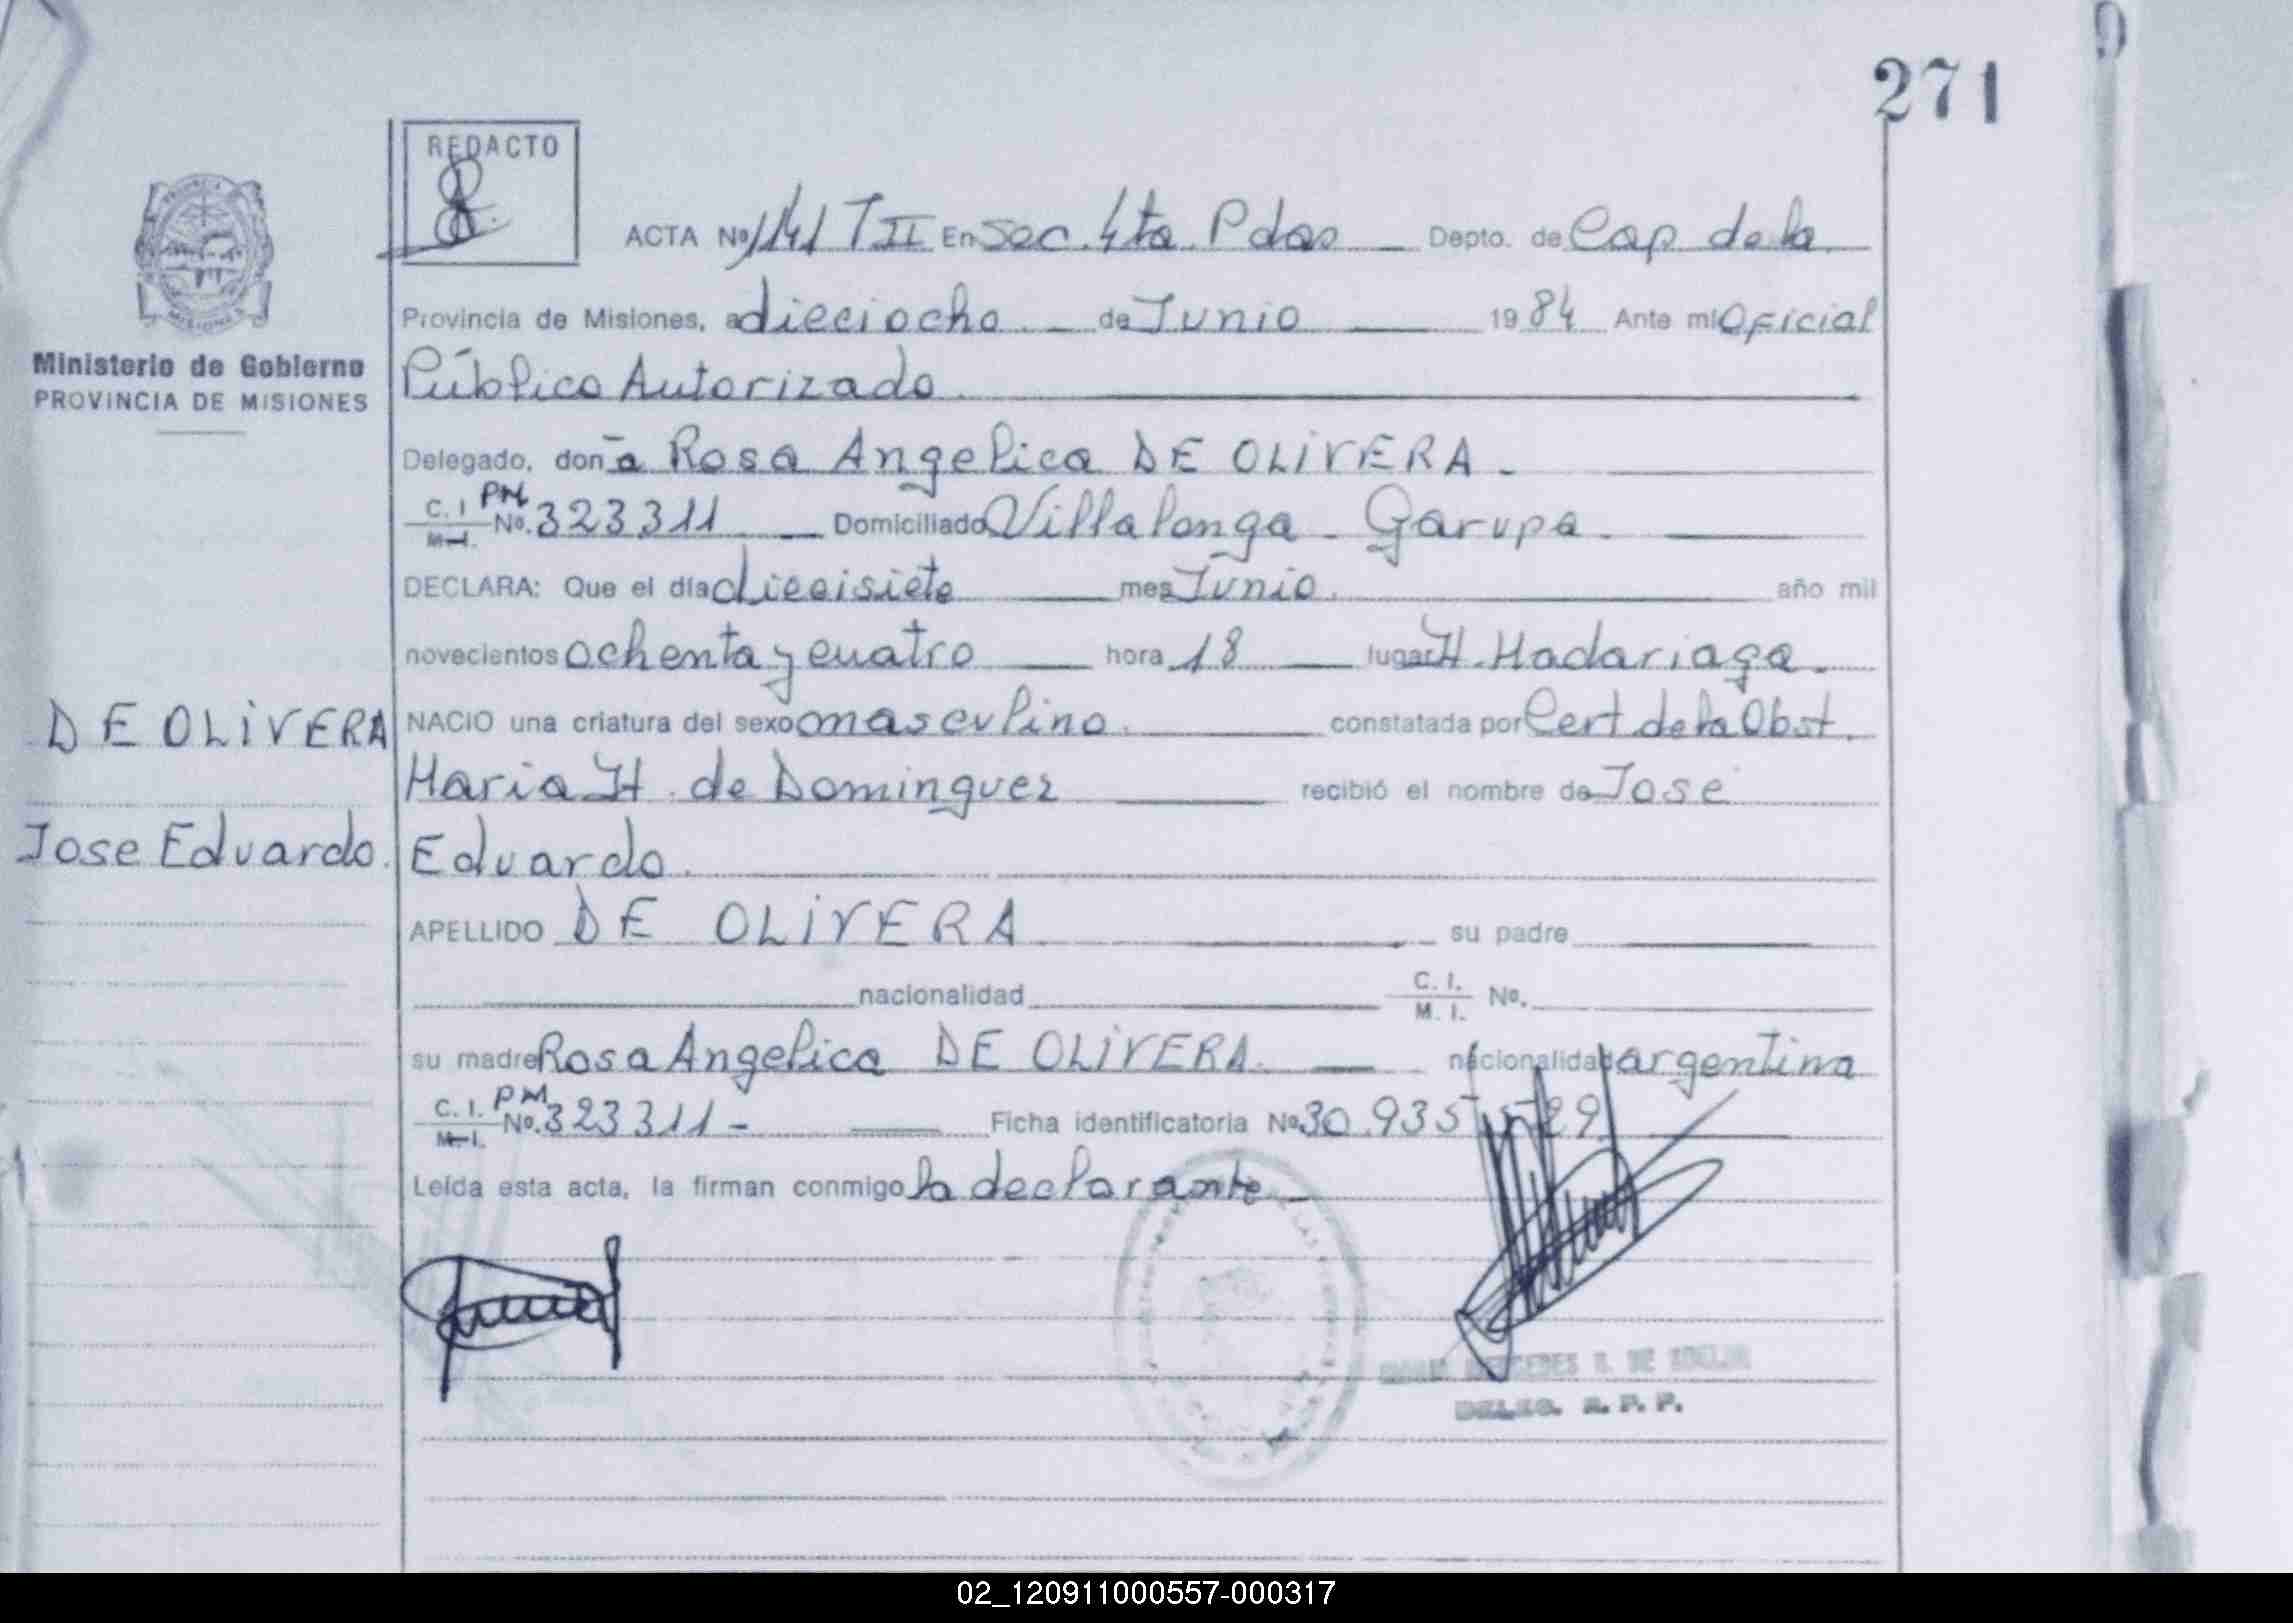 271
REDACTO
ACTA Nº 1141 T II En Sec. 4ta. Pdas Depto. de Cap de la
Provincia de Misiones, a dieciocho de Junio 1984 Ante mi Oficial
Público Autorizado
Delegado, don ̄a Rosa Angelica DE OLIVERA.
C. I PM
M-I. Nº. 323311 Domiciliado Villalonga - Garupa.
DECLARA: Que el día diecisiete mes Junio. año mil
novecientos ochenta y cuatro hora 18 lugar H. Madariaga.
NACIO una criatura del sexo masculino. constatada por Cert de la Obst.
Maria H. de Dominguez recibió el nombre de Jose
Eduardo.
APELLIDO DE OLIVERA su padre
nacionalidad C. I. M. I. Nº.
su madre Rosa Angelica DE OLIVERA. nacionalidad argentina
C. I. PM
M-I. Nº. 323311- Ficha identificatoria Nº 30.935.529
Leída esta acta, la firman conmigo la declarante
MERCEDES
DELEG. R. P. P.
MISIONES
Ministerio de Gobierno
PROVINCIA DE MISIONES
DE OLIVERA
Jose Eduardo.
02_120911000557-000317